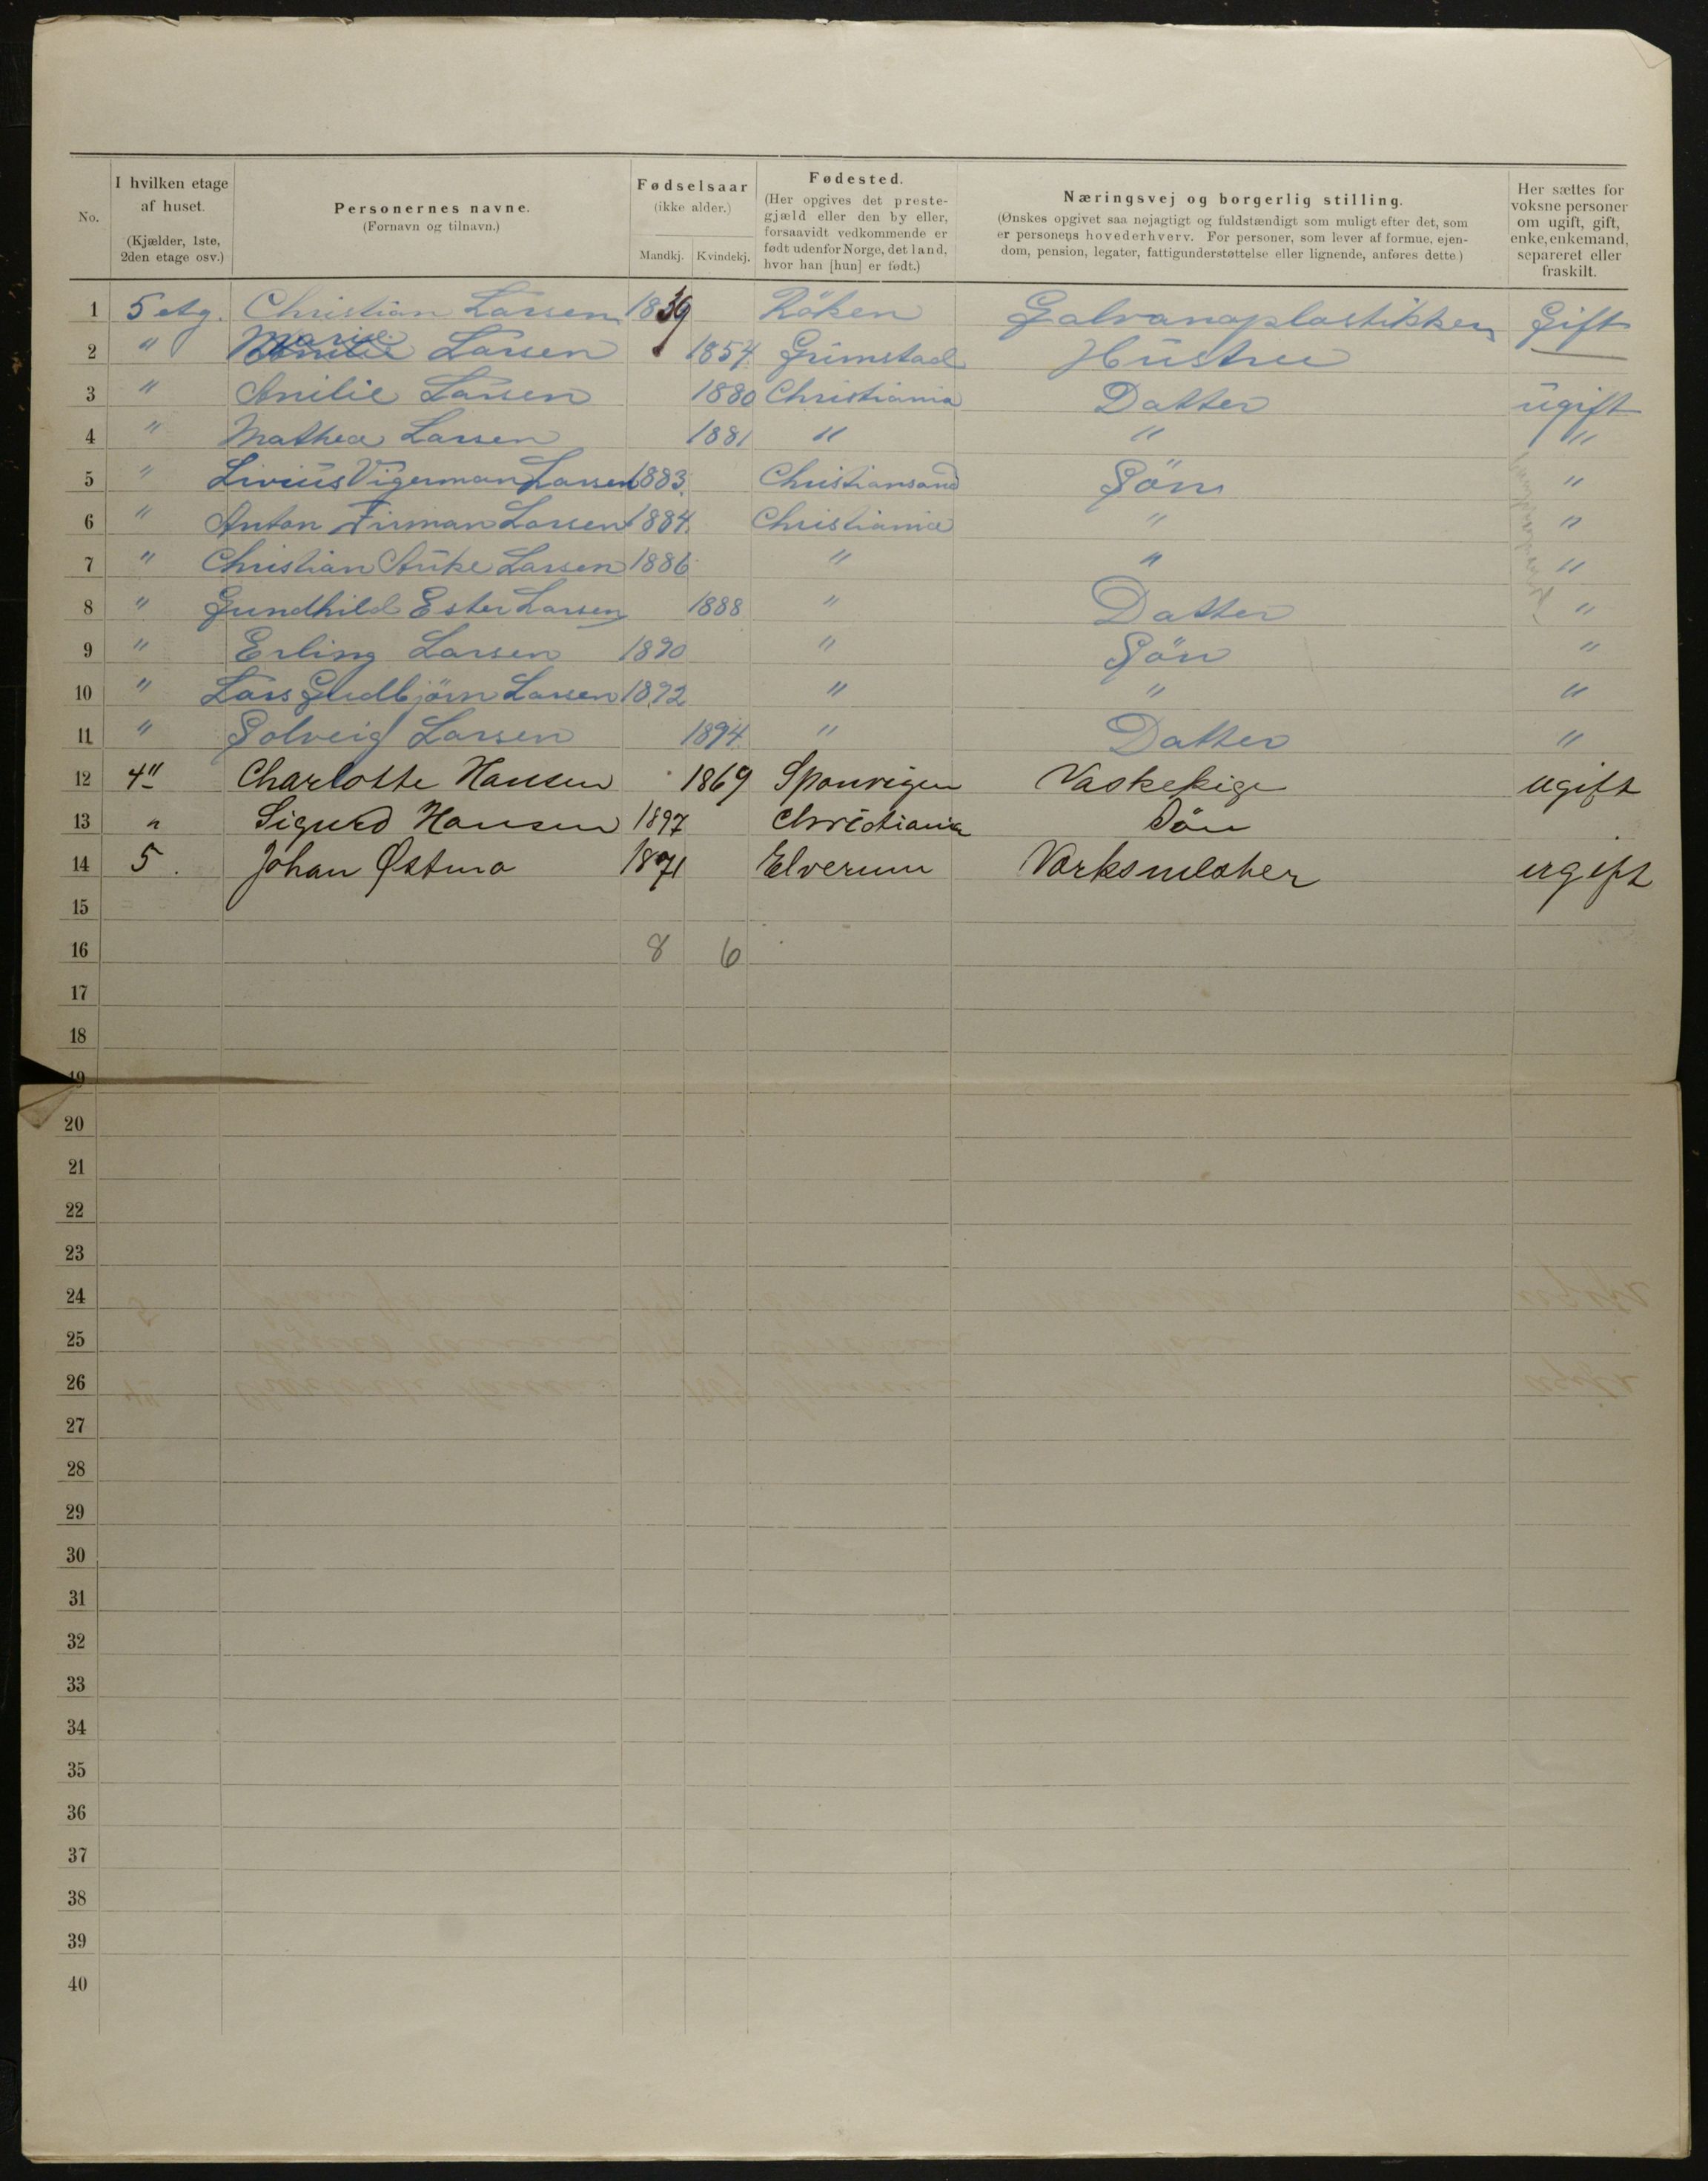 No. | I hvilken etage af huset. (Kjælder, 1ste, 2den etage osv.) | Personernes navne. (Fornavn og tilnavn.) | Fødselsaar (ikke alder.) Mandkj. Kvindekj. | Fødested. (Her opgives det prestegjæld eller den by eller, forsaavidt vedkommende er født udenfor Norge, det land, hvor han [hun] er født.) | Næringsvej og borgerlig stilling. (Ønskes opgivet saa nøjagtigt og fuldstændigt som muligt efter det, som er personens hovederhverv. For personer, som lever af formue, ejendom, pension, legater, fattigunderstøttelse eller lignende, anføres dette.) | Her sættes for voksne personer om ugift, gift, enke, enkemand, separeret eller fraskilt.
1 5 etg. Christian Larsen 1839 Röken Galvanoplastikker Gift
2 " Marie Larsen 1854 Grimstad Hustru —
3 " Anilie Larsen 1880 Christiania Datter ugift
4 " Mathea Larsen 1881 " " "
5 " Livius Vigerman Larsen 1883 Christiansand Sön "
6 " Anton Firman Larsen 1884 Christiania " "
7 " Christian Auke Larsen 1886 " " "
8 " Gundhild Ester Larsen 1888 " Datter "
9 " Erling Larsen 1890 " Sön "
10 " Lars Gudbjörn Larsen 1892 " " "
11 " Solveig Larsen 1894 " Datter "
12 4" Charlotte Hansen 1869 Spanvigen Vaskepige ugift
13 " Sigurd Hansen 1897 Christiania Sön
14 5. Johan Østmo 1871 Elverum ugift
15
16 8 6
17
18
19
20
21
22
23
24
25
26
27
28
29
30
31
32
33
34
35
36
37
38
39
40